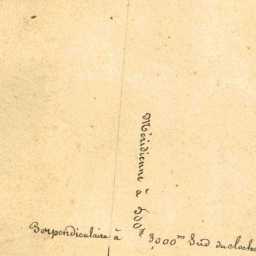 Méridienne à 500
Perpendiculaire à 3,000m Sud du cloch